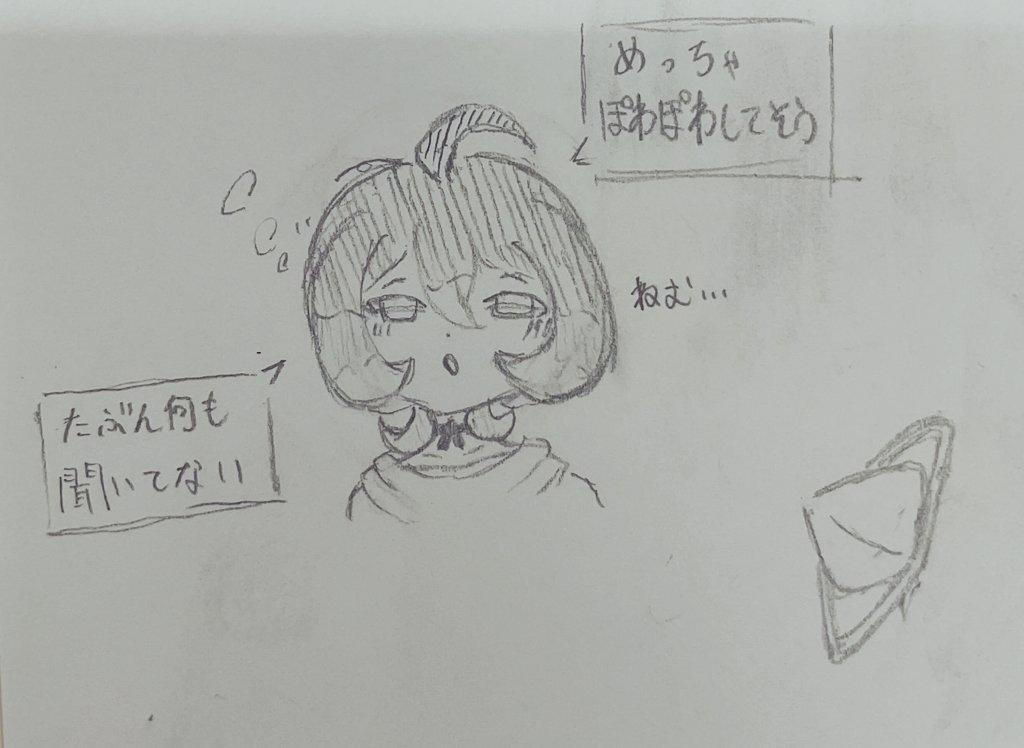 めっちゃ
ぽわぽわしてそう
ねむ…
たぶん何も
聞いてない